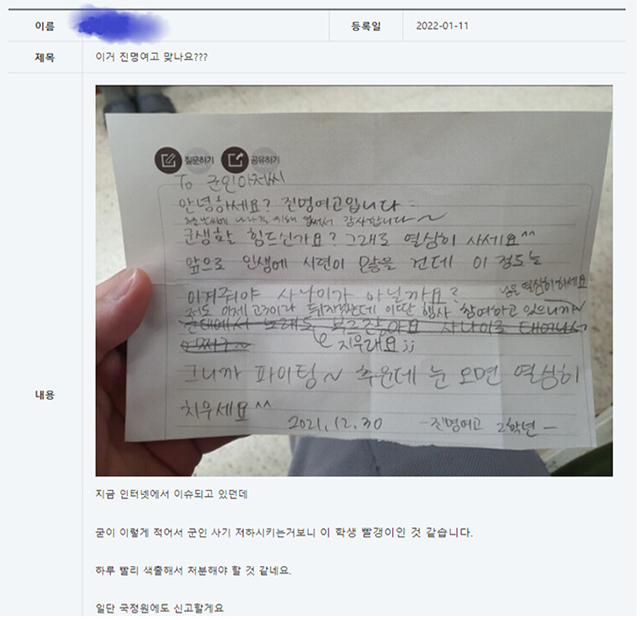 이름
등록일 2022-01-11
제목 이거 진명여고 맞나요???
질문하기 공유하기
To 군인아저씨
안녕하세요? 진명여고입니다
추운 날씨에 나라를 위해 힘써서 감사합니다~
군생활 힘드신가요? 그래도 열심히 사세요^^
앞으로 인생에 시련이 많을 건데 이 정도는
이겨줘야 사나이가 아닐까요?
저도 이제 고3이라 뒤지겠는데 이딴 행사 참여하고 있으니까~
님은 열심히 하세요
군대에서 노래도 부르잖아요 사나이로 태어나서
지우래요;;
그니까 파이팅~ 추운데 눈 오면 열심히
치우세요^^
2021.12.30 -진명여고 2학년-
내용
지금 인터넷에서 이슈되고 있던데
굳이 이렇게 적어서 군인 사기 저하시키는거보니 이 학생 빨갱이인 것 같습니다.
하루 빨리 색출해서 처분해야 할 것 같네요.
일단 국정원에도 신고할게요